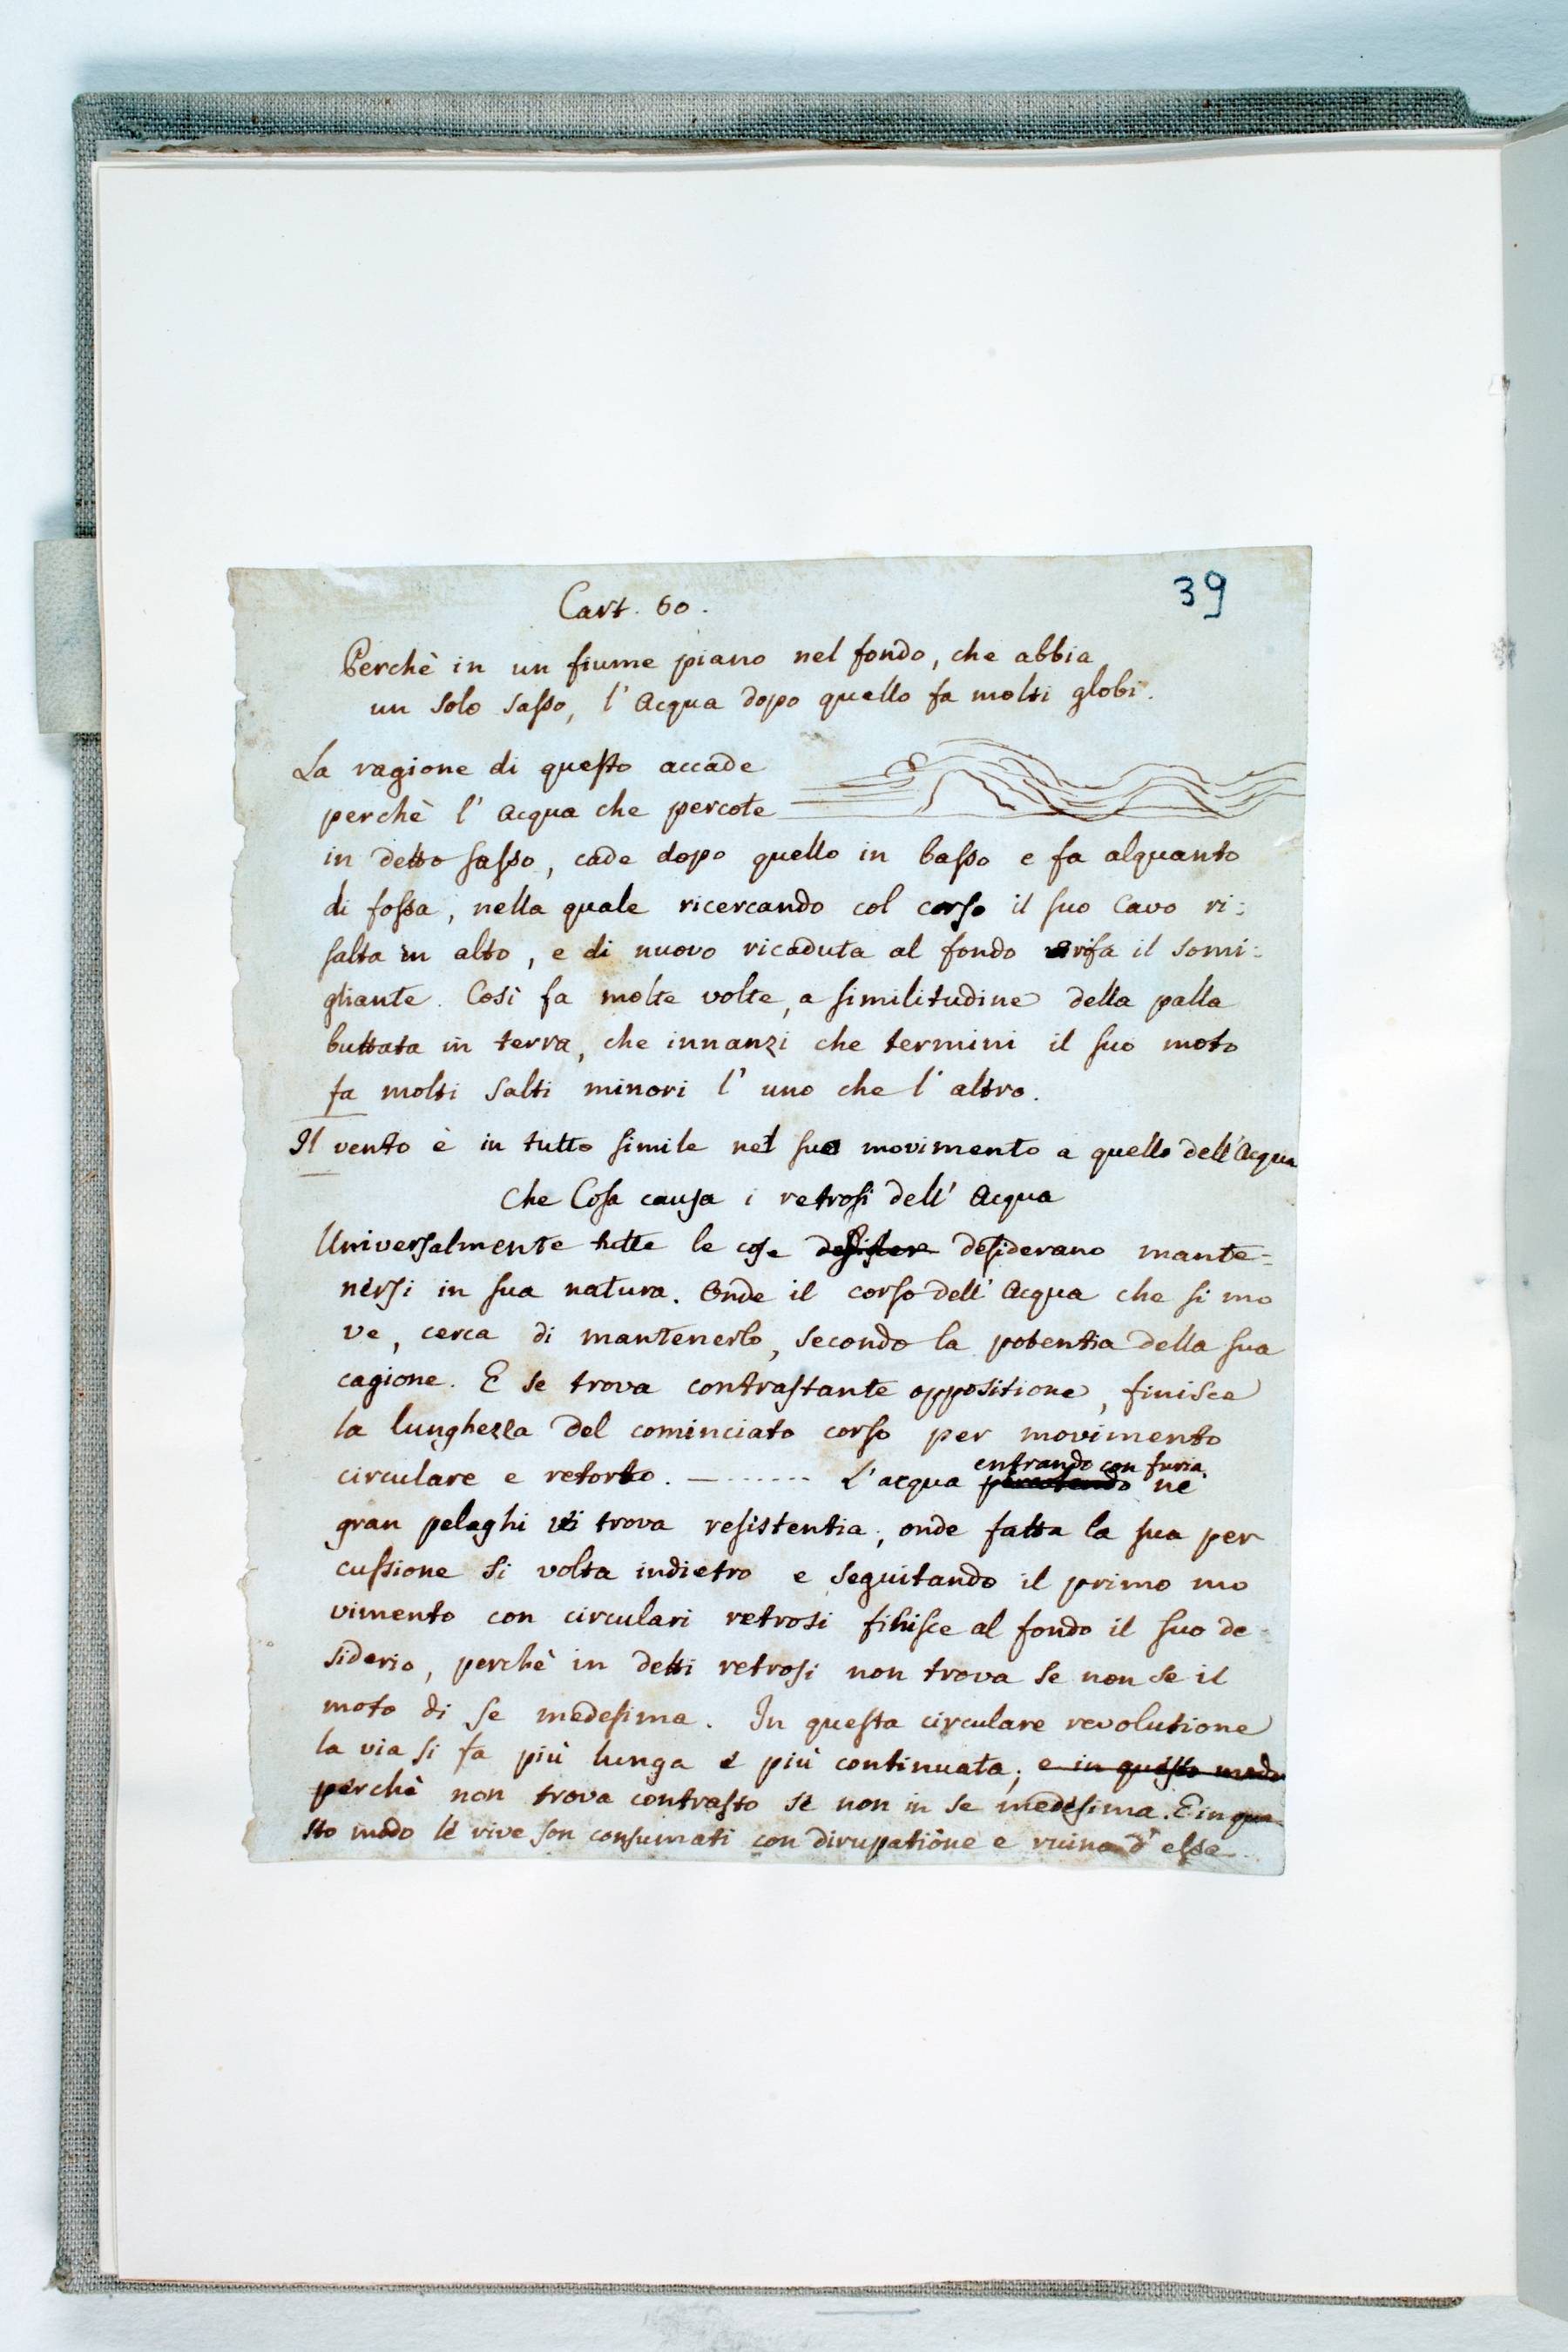 39
Cart. 60.
Perchè in un fiume piano nel fondo, che abbia
un solo sasso, l' Acqua dopo quello fa molti globi.
La ragione di questo accade
perchè l' Acqua che percote
in detto sasso, cade dopo quello in basso e fa alquanto
di fossa, nella quale ricercando col corso il suo cavo ri:
salta in alto, e di nuovo ricaduta al fondo rifa il somi:
gliante. Così fa molte volte, a similitudine della palla
buttata in terra, che innanzi che termini il suo moto
fa molti salti minori l' uno che l' altro.
Il vento è in tutto simile nel suo movimento a quello dell' Acqua
Che Cosa causa i retrosi dell' Acqua
Universalmente tutte le cose desiderano mante=
nersi in sua natura. Onde il corso dell' Acqua che si mo
ve, cerca di mantenerlo, secondo la potentia della sua
cagione. E se trova contrastante oppositione, finisce
la lunghezza del cominciato corso per movimento
circulare e retorto. — ........ L' acqua percotendo entrando con furia ne
gran pelaghi vi trova resistentia, onde fatta la sua per
cussione si volta indietro e seguitando il primo mo
vimento con circulari retrosi finisce al fondo il suo de-
siderio, perchè in detti retrosi non trova se non se il
moto di se medesima. In questa circulare revolutione
la via si fa più lunga e più continuata; e in questo modo
perchè non trova contrasto se non in se medesima. E in que
sto modo le rive son consumati con dirupatione e ruina d' esse